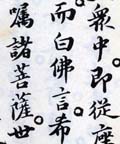 衆中即從座
而白佛言希
囑諸菩薩世